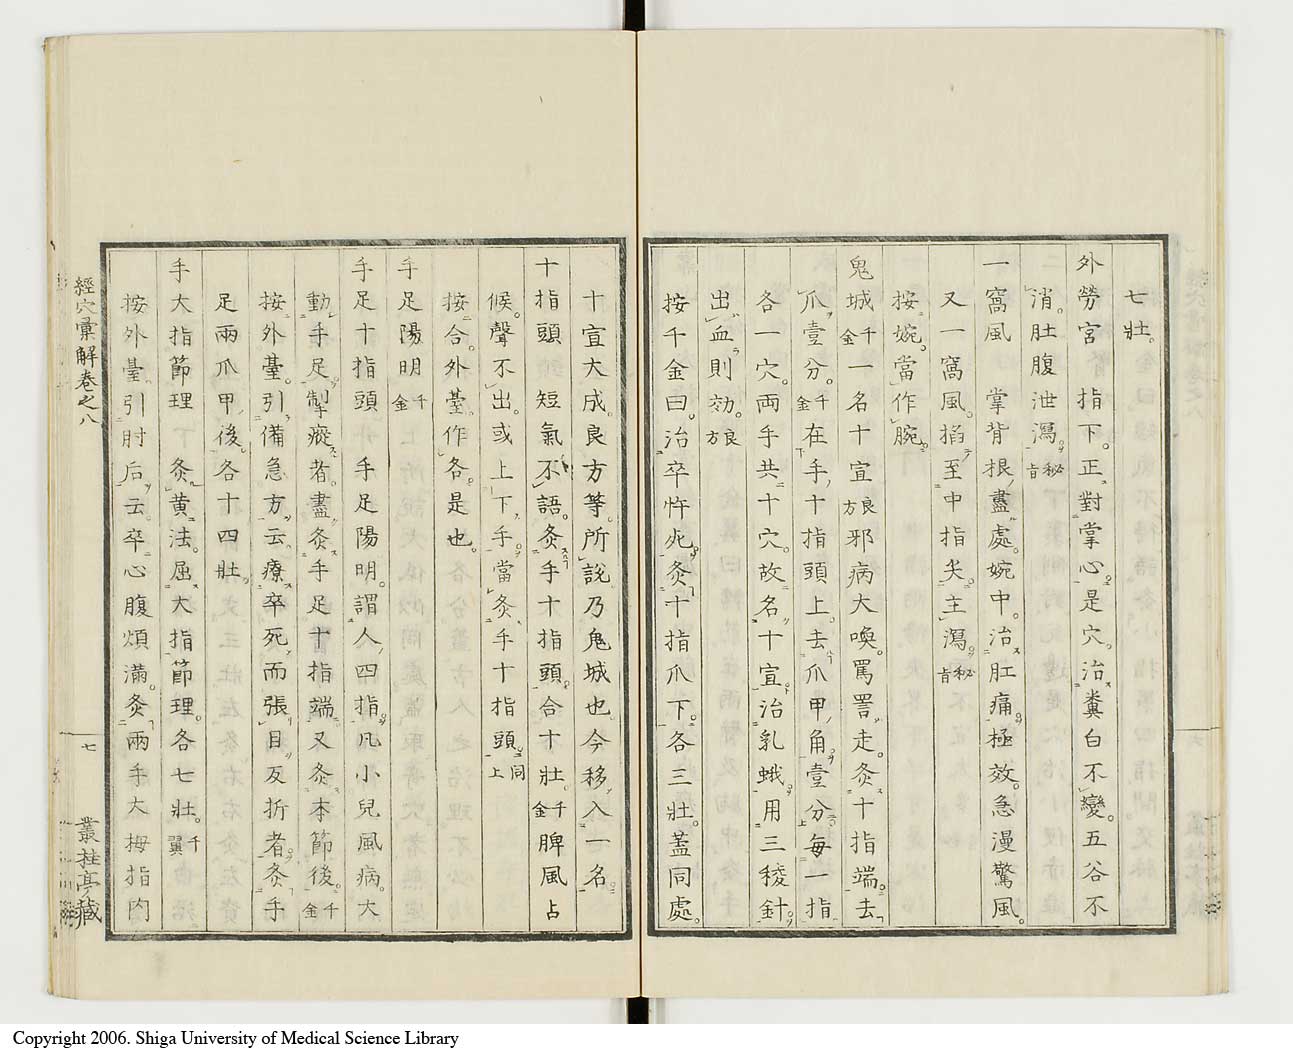 七壯。
外勞宮　指下。正對掌心。是穴。治糞白不變。五谷不
消。肚腹泄瀉。秘旨
一窩風　掌背根盡處。婉中。治肚痛。極效。急漫驚風。
又一窩風。掐至中指尖。主瀉。秘旨
按婉。當作腕。
鬼城千金一名十宣良方邪病大喚罵詈走。灸十指端。去
爪壹分。千金在手十指頭上。去爪甲角壹分。每一指
各一穴。兩手共十穴。故名十宣。治乳蛾。用三稜針
出血則効。良方
按千金曰。治卒忤死。灸十指爪下。各三壯。蓋同處。
十宣大成。良方等。所說乃鬼城也。今移入一名。
十指頭　短氣不語。灸手十指頭。合十壯。千金脾風占
候。聲不出。或上下手。當灸手十指頭。同上
按合。外臺。作各。是也。
手足陽明千金
手足十指頭　手足陽明。謂人四指。凡小兒風病。大
動手足。掣瘲者。盡灸手足十指端。又灸本節後。千金
按外臺。引備急方云。療卒死而張目反折者。灸手
足兩爪甲後。各十四壯。
手大指節理　灸黃法。屈大指節理。各七壯。千翼
按外臺。引肘后云。卒心腹煩滿。灸兩手大拇指內
經穴彙解卷之八
七
叢桂亭藏
Copyright 2006. Shiga University of Medical Science Library